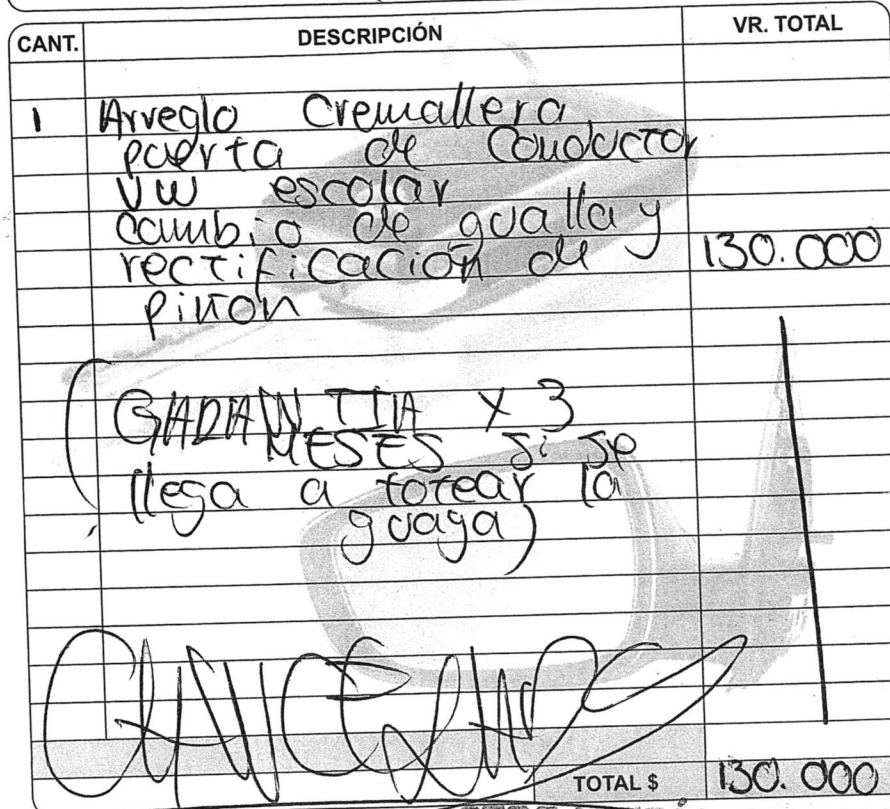 CANT. DESCRIPCIÓN VR. TOTAL
1 Arreglo Cremallera
puerta de Conductor
VW escolar
cambio de gualla y
rectificación de 130.000
piñon
(GARANTIA X 3
MESES si se
llega a torear la
guaya)
CANCELADO
TOTAL $ 130.000